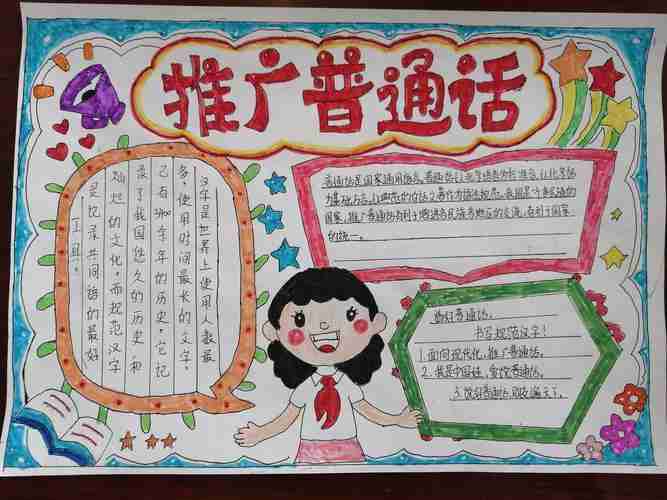 推广普通话
汉字是世界上使用人数最
多，使用时间最长的文字。
已有3400余年的历史，它记
录了我国悠久的历史和
灿烂的文化。而规范汉字
是记录共同语的最好
工具。
普通话是国家通用语言。普通话以北京语音为标准音，以北方话
为基础方言，以典范的白话文著作为语法规范。我国是个多民族的
国家，推广普通话有利于增进各民族各地区的交流，有利于国家
的统一。
说好普通话，
书写规范汉字！
1.面向现代化，推广普通话。
2.我是中国娃，爱说普通话。
3.说好普通话，朋友遍天下。